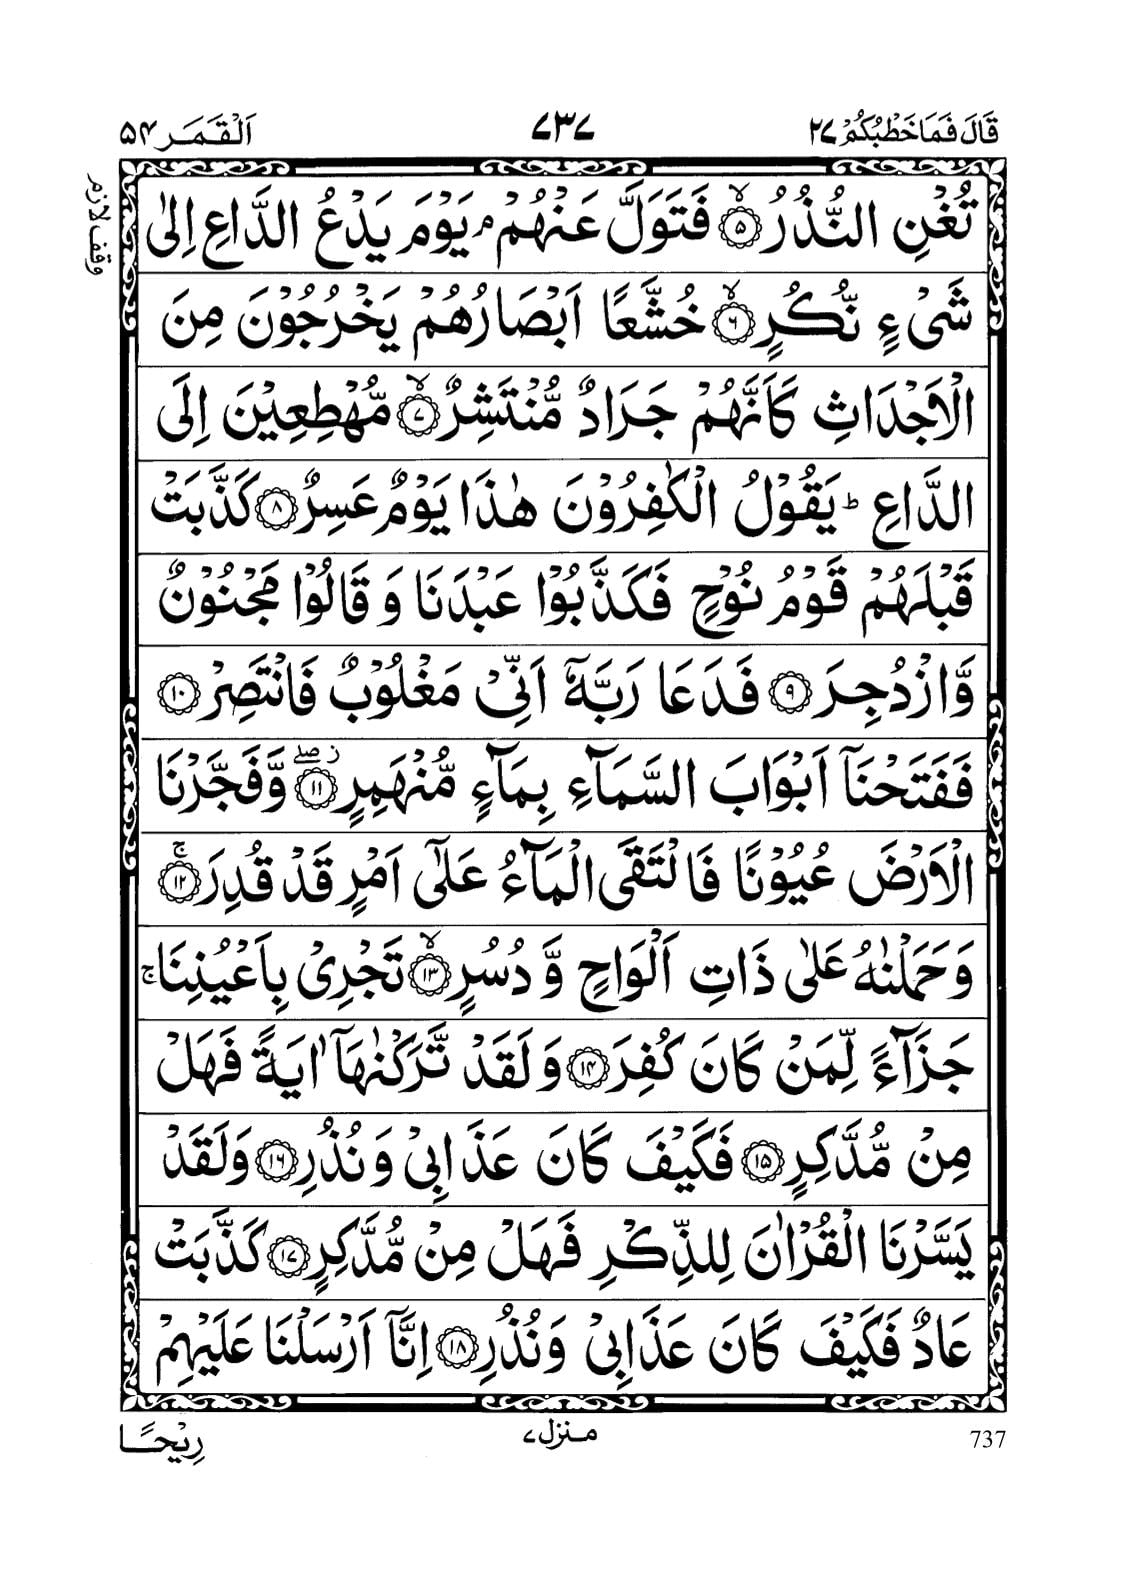 قَالَ فَمَا خَطْبُكُمْ ۲۷ ۷۳۷ اَلْقَمَر ۵۴
وقف لازم
تُغْنِ النُّذُرُ ۙ﴿۵﴾ فَتَوَلَّ عَنْهُمْ ۘ يَوْمَ يَدْعُ الدَّاعِ اِلٰى
شَىْءٍ نُّكُرٍ ۙ﴿۶﴾ خُشَّعًا اَبْصَارُهُمْ يَخْرُجُوْنَ مِنَ
الْاَجْدَاثِ كَاَنَّهُمْ جَرَادٌ مُّنْتَشِرٌ ۙ﴿۷﴾ مُّهْطِعِيْنَ اِلَى
الدَّاعِ ؕ يَقُوْلُ الْكٰفِرُوْنَ هٰذَا يَوْمٌ عَسِرٌ ﴿۸﴾ كَذَّبَتْ
قَبْلَهُمْ قَوْمُ نُوْحٍ فَكَذَّبُوْا عَبْدَنَا وَ قَالُوْا مَجْنُوْنٌ
وَّازْدُجِرَ ﴿۹﴾ فَدَعَا رَبَّهٗۤ اَنِّىْ مَغْلُوْبٌ فَانْتَصِرْ ﴿۱۰﴾
فَفَتَحْنَاۤ اَبْوَابَ السَّمَآءِ بِمَآءٍ مُّنْهَمِرٍ ﴿۱۱﴾ ز صلے وَّفَجَّرْنَا
الْاَرْضَ عُيُوْنًا فَالْتَقَى الْمَآءُ عَلٰٓى اَمْرٍ قَدْ قُدِرَ ۚ﴿۱۲﴾
وَحَمَلْنٰهُ عَلٰى ذَاتِ اَلْوَاحٍ وَّ دُسُرٍ ۙ﴿۱۳﴾ تَجْرِىْ بِاَعْيُنِنَا ۚ
جَزَآءً لِّمَنْ كَانَ كُفِرَ ﴿۱۴﴾ وَلَقَدْ تَّرَكْنٰهَاۤ اٰيَةً فَهَلْ
مِنْ مُّدَّكِرٍ ﴿۱۵﴾ فَكَيْفَ كَانَ عَذَابِىْ وَنُذُرِ ﴿۱۶﴾ وَلَقَدْ
يَسَّرْنَا الْقُرْاٰنَ لِلذِّكْرِ فَهَلْ مِنْ مُّدَّكِرٍ ﴿۱۷﴾ كَذَّبَتْ
عَادٌ فَكَيْفَ كَانَ عَذَابِىْ وَنُذُرِ ﴿۱۸﴾ اِنَّاۤ اَرْسَلْنَا عَلَيْهِمْ
737 منزل ۷ رِيْحًا